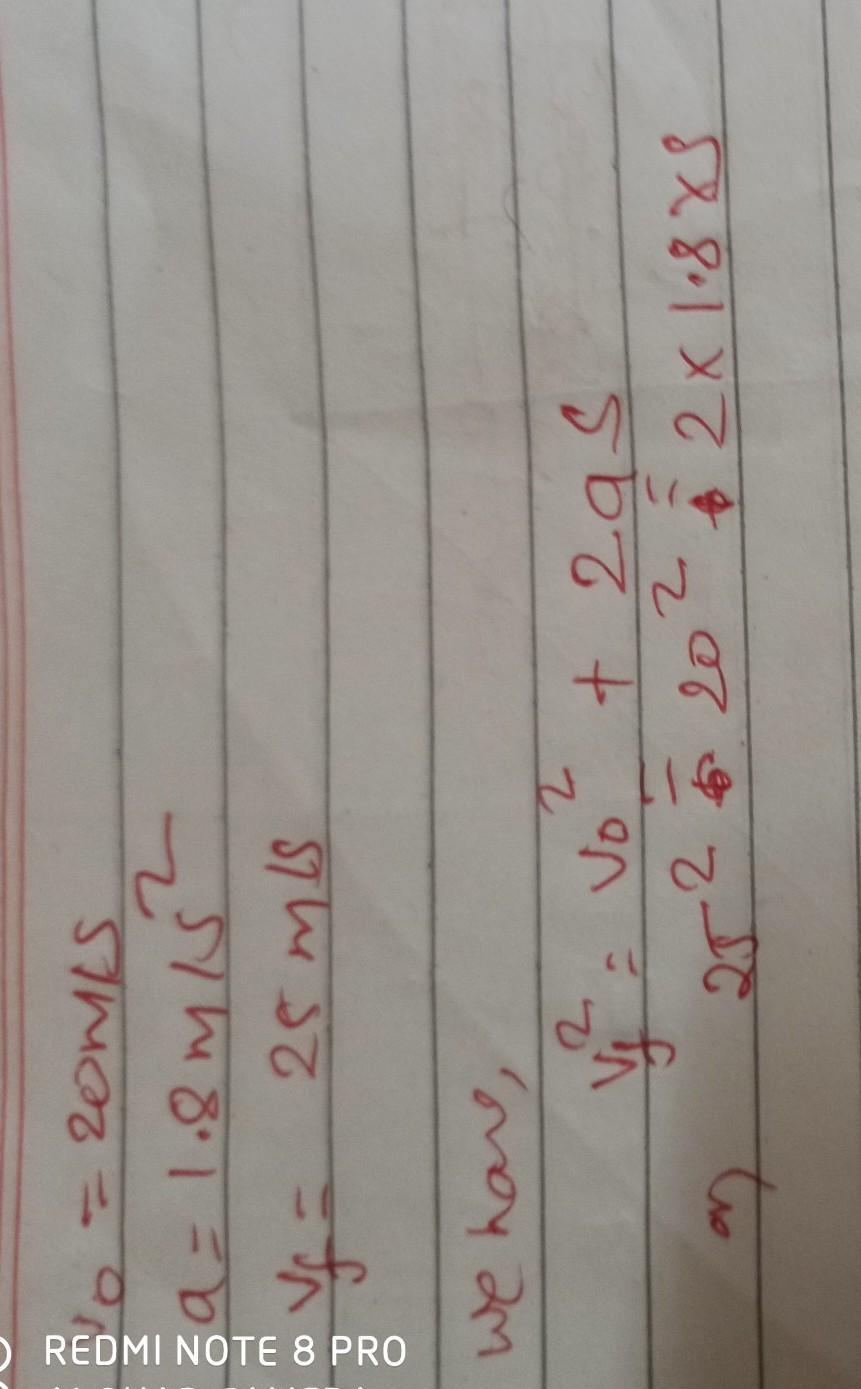 v₀ = 20m/s
a = 1.8 m/s²
v_f = 25 m/s
we have,
v_f² = v₀² + 2as
or, 25² - 20² = 2 × 1.8 × s
REDMI NOTE 8 PRO